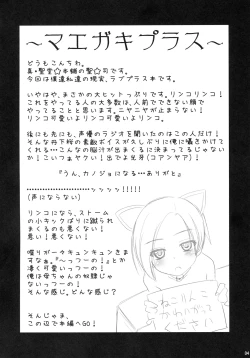 ～マエガキプラス～
どうもこんちわ。
真・聖堂☆本舗の聖☆司です。
今回は僕達私達の現実、ラブプラス本です。
いやはや、まさかの大ヒットっぷりです。リンコリンコ！
これをやってる人の大多数は、人前でできない顔で
やってることと思います。ニヤニヤが止まらない！
リンコ可愛いよリンコ可愛いよリンコ。
後にも先にも、声優のラジオを聞いたのはこの人だけ！
そんな丹下桜の素敵ボイスが久しぶりに俺に囁きかけて
くれる…こんなの脳汁が出まくるに決まってるじゃない
か！こいつぁヤクい！
『うん、カノジョになる…ありがと』
…………………………ッッッ!!!!!
(声にならない)
リンコになら、ストーム
の小キックばりに蹴られ
まくるのも悪くない！
悪い！悪くない！
喋りがーウキュンキュンきま
すねっ。『～っつーの！』とか
凄く可愛いっつーの！
俺は母ちゃんの奴隷じゃ
ないっつーの！
そんな感じ。どんな感じ？
そんじゃま、
この辺で本編へGO！
ねこりんこ
かわいがって
ください